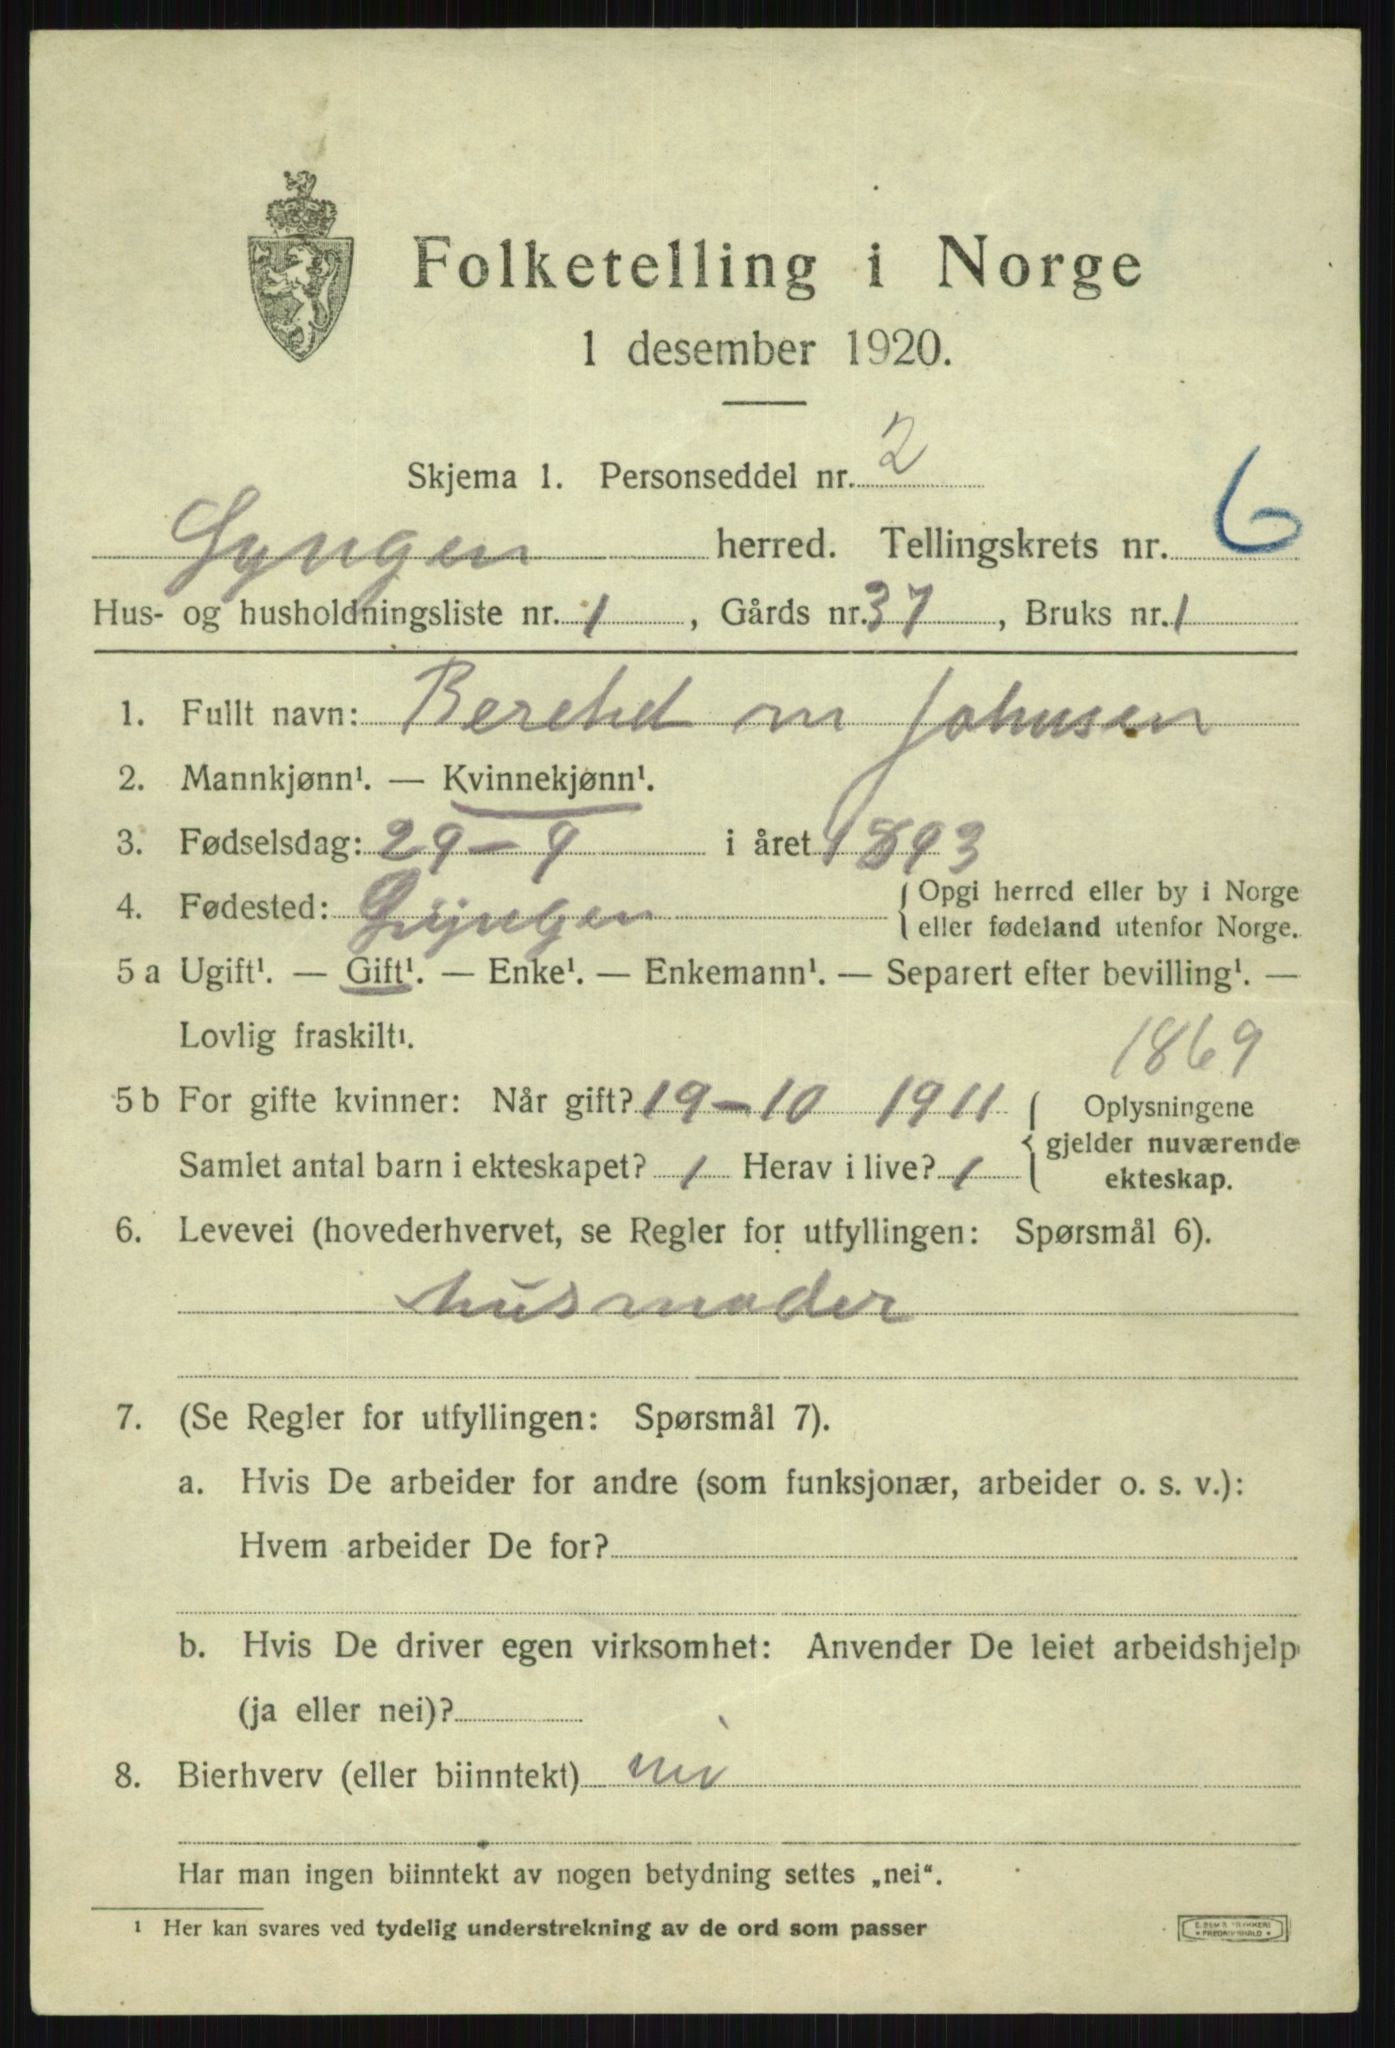 Folketelling i Norge
1 desember 1920.
Skjema 1. Personseddel nr. 2
Lyngen herred. Tellingskrets nr. 6
Hus- og husholdningsliste nr. 1, Gårds nr. 37, Bruks nr. 1
1. Fullt navn: Berehd m Johnsen
2. Mannkjønn¹. — Kvinnekjønn¹.
3. Fødselsdag: 29-9 i året 1893
4. Fødested: Lyngen { Opgi herred eller by i Norge
eller fødeland utenfor Norge.
5 a Ugift¹. — Gift¹. — Enke¹. — Enkemann¹. — Separert efter bevilling¹. —
Lovlig fraskilt¹.
1869
5 b For gifte kvinner: Når gift? 19-10 1911 { Oplysningene
gjelder nuværende
Samlet antal barn i ekteskapet? 1 Herav i live? 1
ekteskap.
6. Levevei (hovederhvervet, se Regler for utfyllingen: Spørsmål 6).
husmoder
7. (Se Regler for utfyllingen: Spørsmål 7).
a. Hvis De arbeider for andre (som funksjonær, arbeider o. s. v.):
Hvem arbeider De for?
b. Hvis De driver egen virksomhet: Anvender De leiet arbeidshjelp
(ja eller nei)?
8. Bierhverv (eller biinntekt) nei
Har man ingen biinntekt av nogen betydning settes „nei“.
¹ Her kan svares ved tydelig understrekning av de ord som passer
FREDRIKSHALD